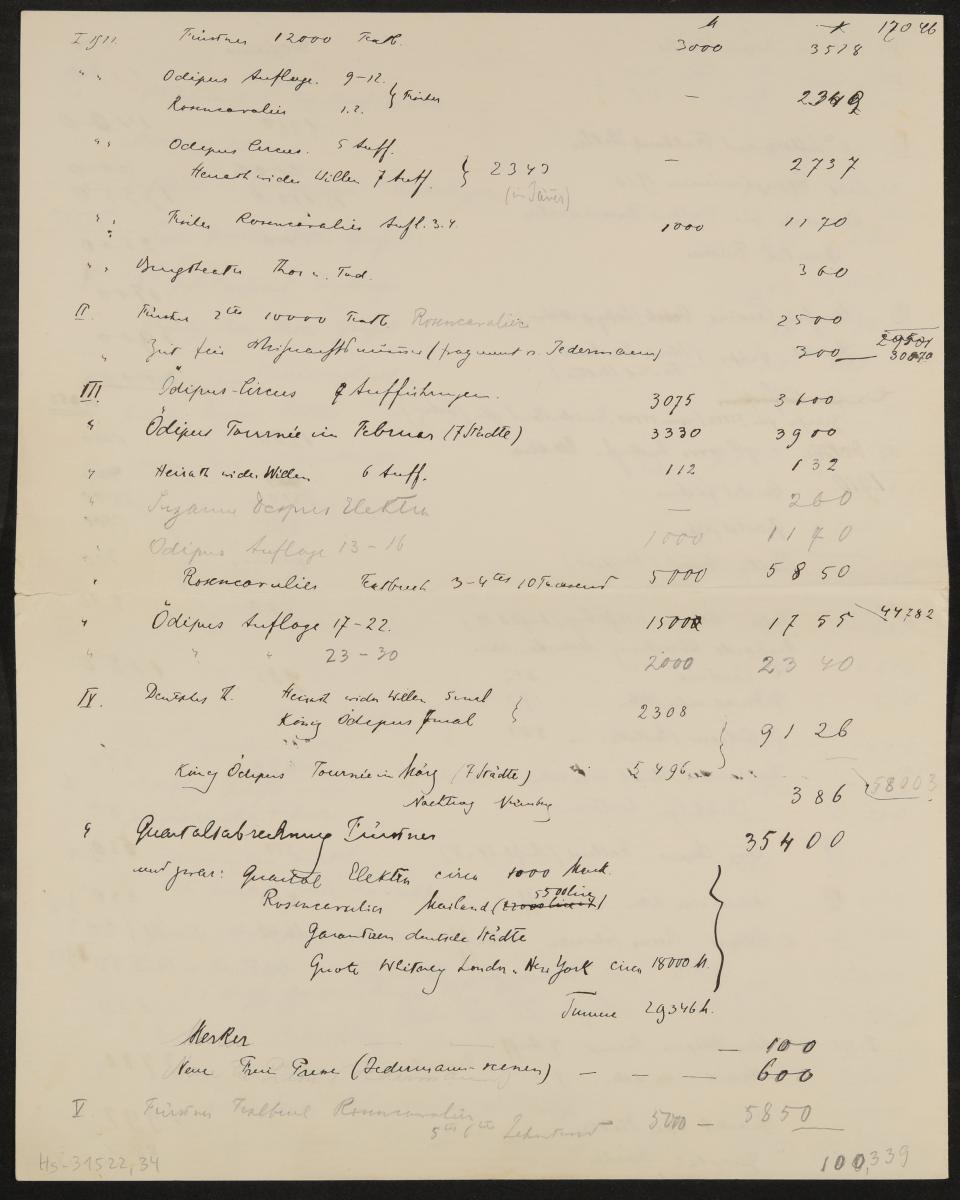 M K 17046
I 1911. Fürstner 12000 Textb. 3000 3528
" " Ödipus Auflage. 9-12. } Fischer — 2340
Rosencavalier 1.2.
" " Ödipus Circus. 5 Auff. } 2343 — 2737
Heirath wider Willen 7 Auff. (im Jänner)
" " Fischer Rosencavalier Aufl. 3.4. 1000 1170
" " Burgtheater Thor u. Tod. 360
II. Fürstner 2tes 10000 Textb Rosencavalier 2500
" Zeit für (fragment v. Jedermann) 300 30070
III Ödipus-Circus 7 Aufführungen. 3075 3600
" Ödipus Tournée im Februar (7 Städte) 3330 3900
" Heirath wider Willen 6 Auff. 112 132
" Suzanne Despres Elektra — 260
" Ödipus Auflage 13-16 1000 1170
" Rosencavalier Textbuch 3-4tes 10 Tausend 5000 5850
" Ödipus Auflage 17-22. 1500 1755 44782
" " " 23-30 2000 2340
IV. Deutsches Th. Heirath wider Willen 5mal } 2308
König Ödipus 7mal } 9126
König Ödipus Tournée im März (7 Städte) 5496
Nachtrag Nürnberg 386 58003
" Quartalsabrechnung Fürstner 35400
und zwar: Quartal Elektra circa 1000 Mark.
Rosencavalier Mailand (5500 lire)
Garantieen deutsche Städte
Quote Whitney London u. New York circa 18000 M.
Summe 29346 M.
Merker — 100
Neue Freie Presse (Jedermann-scenen) — — — 600
V Fürstner Textbuch Rosencavalier
5tes 6tes Zehntausend 5000 — 5850
Hs-31522,34 100,339